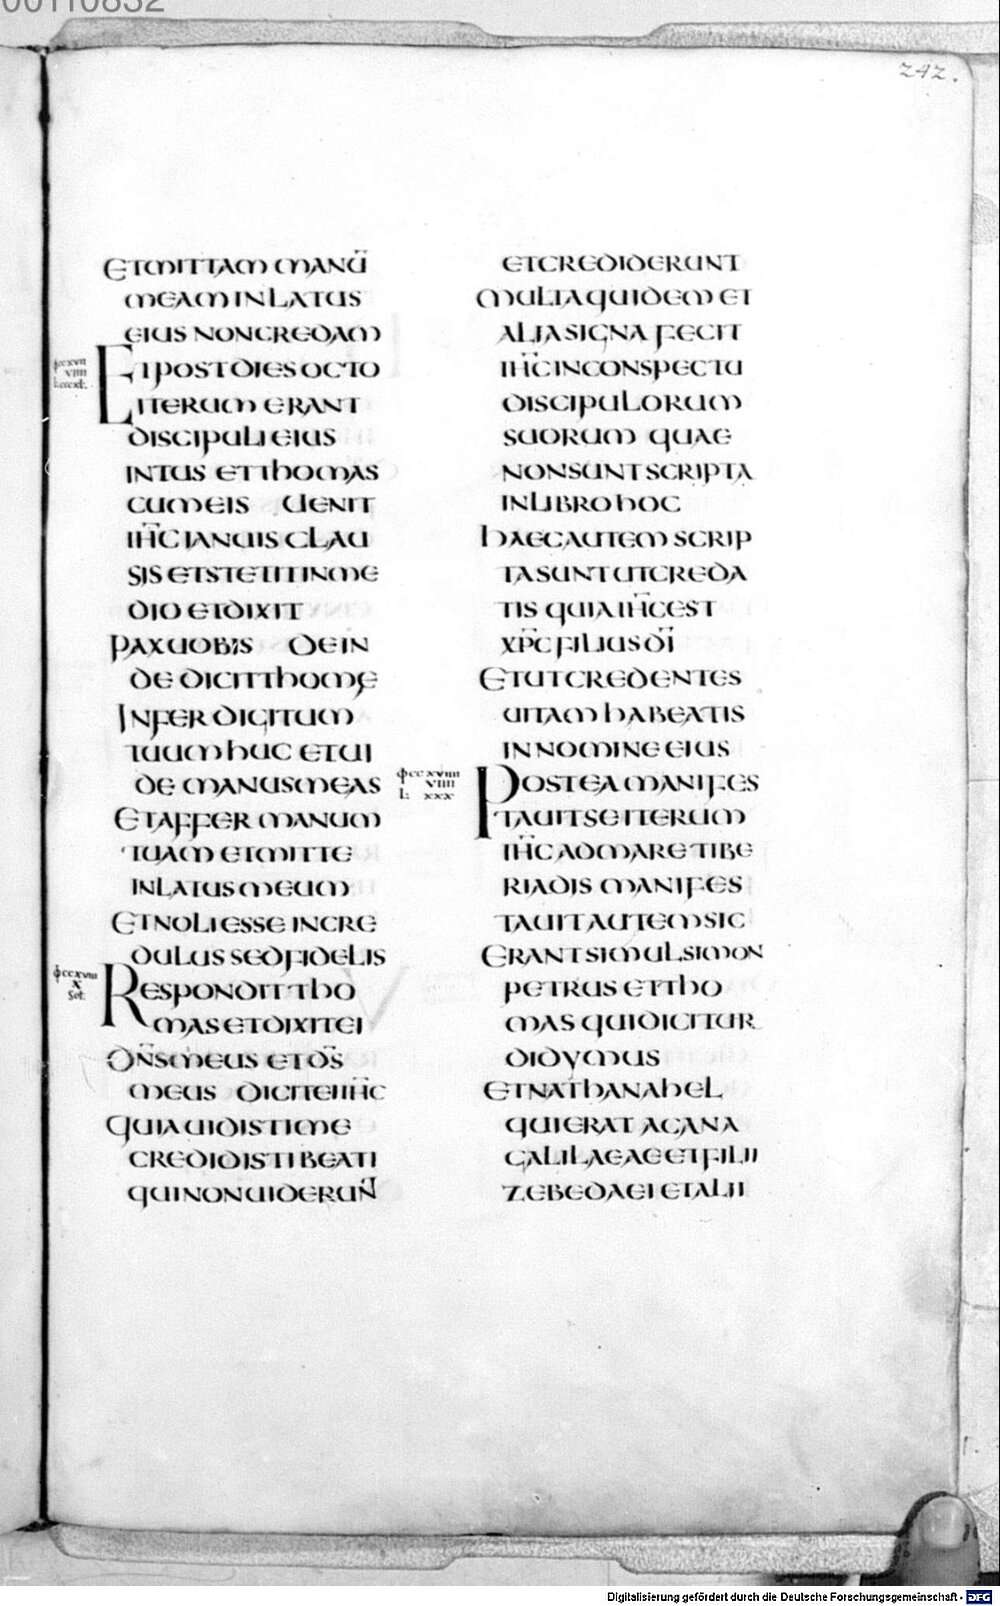 00110832
242.
ETMITTAM MANŪ
MEAM IN LATUS
EIUS NON CREDAM
ET POST DIES OCTO
ITERUM ERANT
DISCIPULI EIUS
INTUS ET THOMAS
CUM EIS UENIT
IH̄C IANUIS CLAU
SIS ET STETIT IN ME
DIO ET DIXIT
PAX UOBIS DEIN
DE DICIT THOMĘ
INFER DIGITUM
TUUM HUC ET UI
DE MANUS MEAS
ET AFFER MANUM
TUAM ET MITTE
IN LATUS MEUM
ET NOLI ESSE INCRE
DULUS SED FIDELIS
RESPONDIT THO
MAS ET DIXIT EI
DN̄S MEUS ET DS̄
MEUS DICIT EI IH̄C
QUIA UIDISTI ME
CREDIDISTI BEATI
QUI NON UIDERUN̄
ET CREDIDERUNT
MULTA QUIDEM ET
ALIA SIGNA FECIT
IH̄C IN CONSPECTU
DISCIPULORUM
SUORUM QUAE
NON SUNT SCRIPTA
IN LIBRO HOC
HAEC AUTEM SCRIP
TA SUNT UT CREDA
TIS QUIA IH̄C EST
XP̄C FILIUS DĪ
ET UT CREDENTES
UITAM HABEATIS
IN NOMINE EIUS
ccxviiii
viiii
L xxx
POSTEA MANIFES
TAUIT SE ITERUM
IH̄C AD MARE TIBE
RIADIS MANIFES
TAUIT AUTEM SIC
ERANT SIMUL SIMON
PETRUS ET THO
MAS QUI DICITUR
DIDYMUS
ET NATHANAHEL
QUI ERAT A CANA
GALILAEAE ET FILII
ZEBEDAEI ET ALII
Digitalisierung gefördert durch die Deutsche Forschungsgemeinschaft - DFG